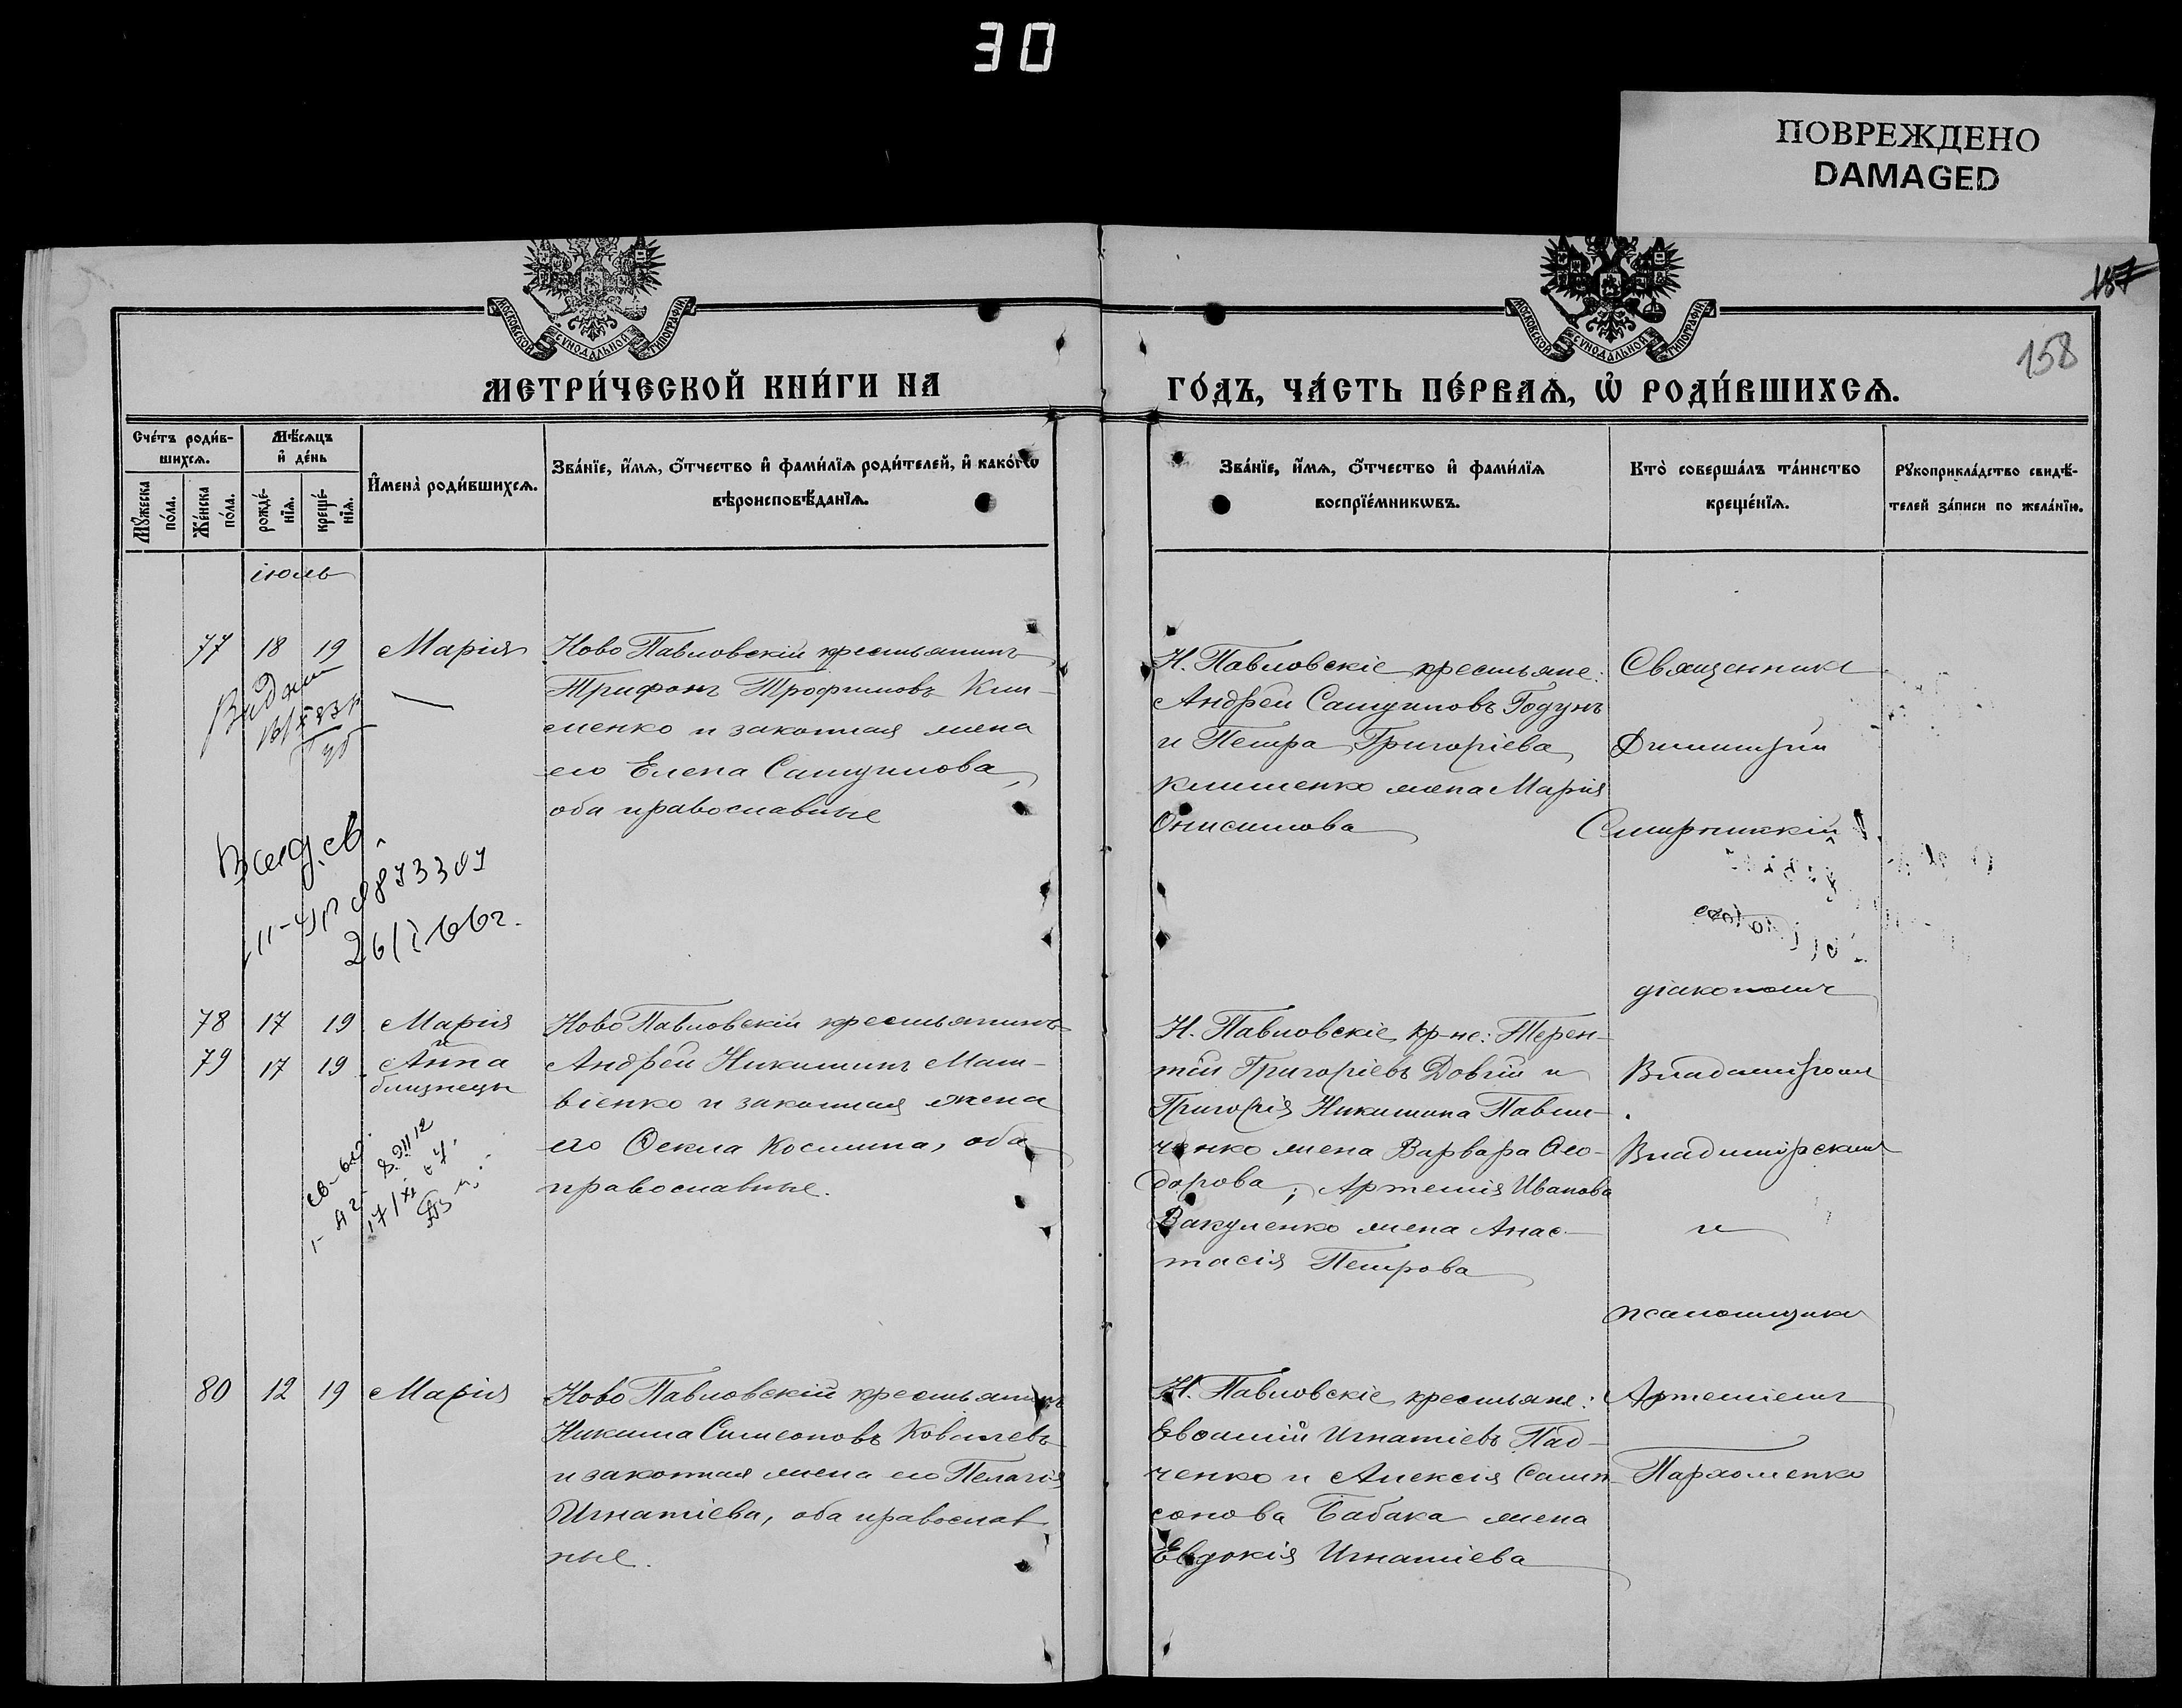 30
ПОВРЕЖДЕНО
DAMAGED
МОСКОВСКОЙ СѴНОДАЛЬНОЙ ТИПОГРАФІИ
МОСКОВСКОЙ СѴНОДАЛЬНОЙ ТИПОГРАФІИ
157
158
МЕТРИ́ЧЕСКОЙ КНИ́ГИ НА
ГО́ДЪ, ЧА́СТЬ ПЕ́РВАѦ, Ѡ҆ РОДИ́ВШИХСѦ.
Сче́тъ роди́в-
шихсѧ.
Мѣ́сѧцъ
и҆ де́нь
Мꙋ́жеска
по́ла.
Же́нска
по́ла.
рожде́-
нїѧ.
креще́-
нїѧ.
И҆мена̀ роди́вшихсѧ.
Зва́нїе, и҆́мѧ, ѻ҆́тчество и҆ фами́лїѧ роди́телей, и҆ како́гѡ
вѣроисповѣ́данїѧ.
Зва́нїе, и҆́мѧ, ѻ҆́тчество и҆ фами́лїѧ
воспрїе́мникѡвъ.
Кто̀ соверша́лъ та́инство
креще́нїѧ.
Рꙋкоприкла́дство свидѣ́-
телей за́писи по жела́нїю.
іюль
77 18 19 Марія
Ново Павловскій крестьянинъ
Трифонъ Трофимовъ Кли-
менко и законная жена
его Елена Самуилова,
оба православные
Н. Павловскіе крестьяне:
Андрей Самуиловъ Годунъ
и Петра Григоріева
Клименко жена Марія
Онисимова
Священникъ
Димитрій
Смирницкій
діакономъ
26/I 66г.
78 17 19 Марія
и
79 17 19 Анна
близнецы
Ново Павловскій крестьянинъ
Андрей Никитинъ Мат-
віенко и законная жена
его Ѳекла Космина, оба
православные.
Н. Павловскіе кр-не: Терен-
тій Григоріевъ Довгій и
Григорія Никитина Павли-
ченко жена Варвара Ѳео-
дорова; Артемія Иванова
Вакуленко жена Анас-
тасія Петрова
Владиміромъ
Владимірскимъ
и
псаломщикъ
80 12 19 Марія
Ново Павловскій крестьянинъ
Никита Симеоновъ Ковалевъ
и законная жена его Пелагія
Игнатіева, оба православ
ные.
Н. Павловскіе крестьяне:
Евѳимій Игнатіевъ Пад-
ченко и Алексія Самп-
сонова Бабака жена
Евдокія Игнатіева
Артеміемъ
Пархоменко